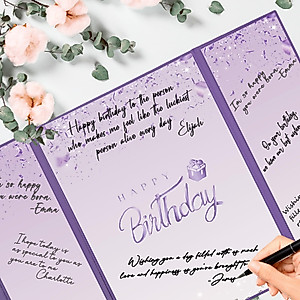 Happy birthday to the person
who makes me feel like the luckiest
person alive every day
Elijah
HAPPY
Birthday
Wishing you a day filled with as much
love and happiness as you've brought to
James
so happy
you were born
Emma
I hope today is
as special to you as
you are to me
Charlotte
I'm so happy
you were born
Emma
On your birthday
Wishing